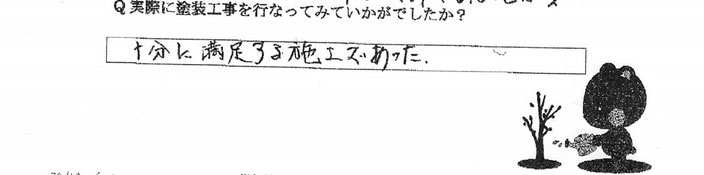 Q実際に塗装工事を行なってみていかがでしたか?
十分に満足する施工であった.